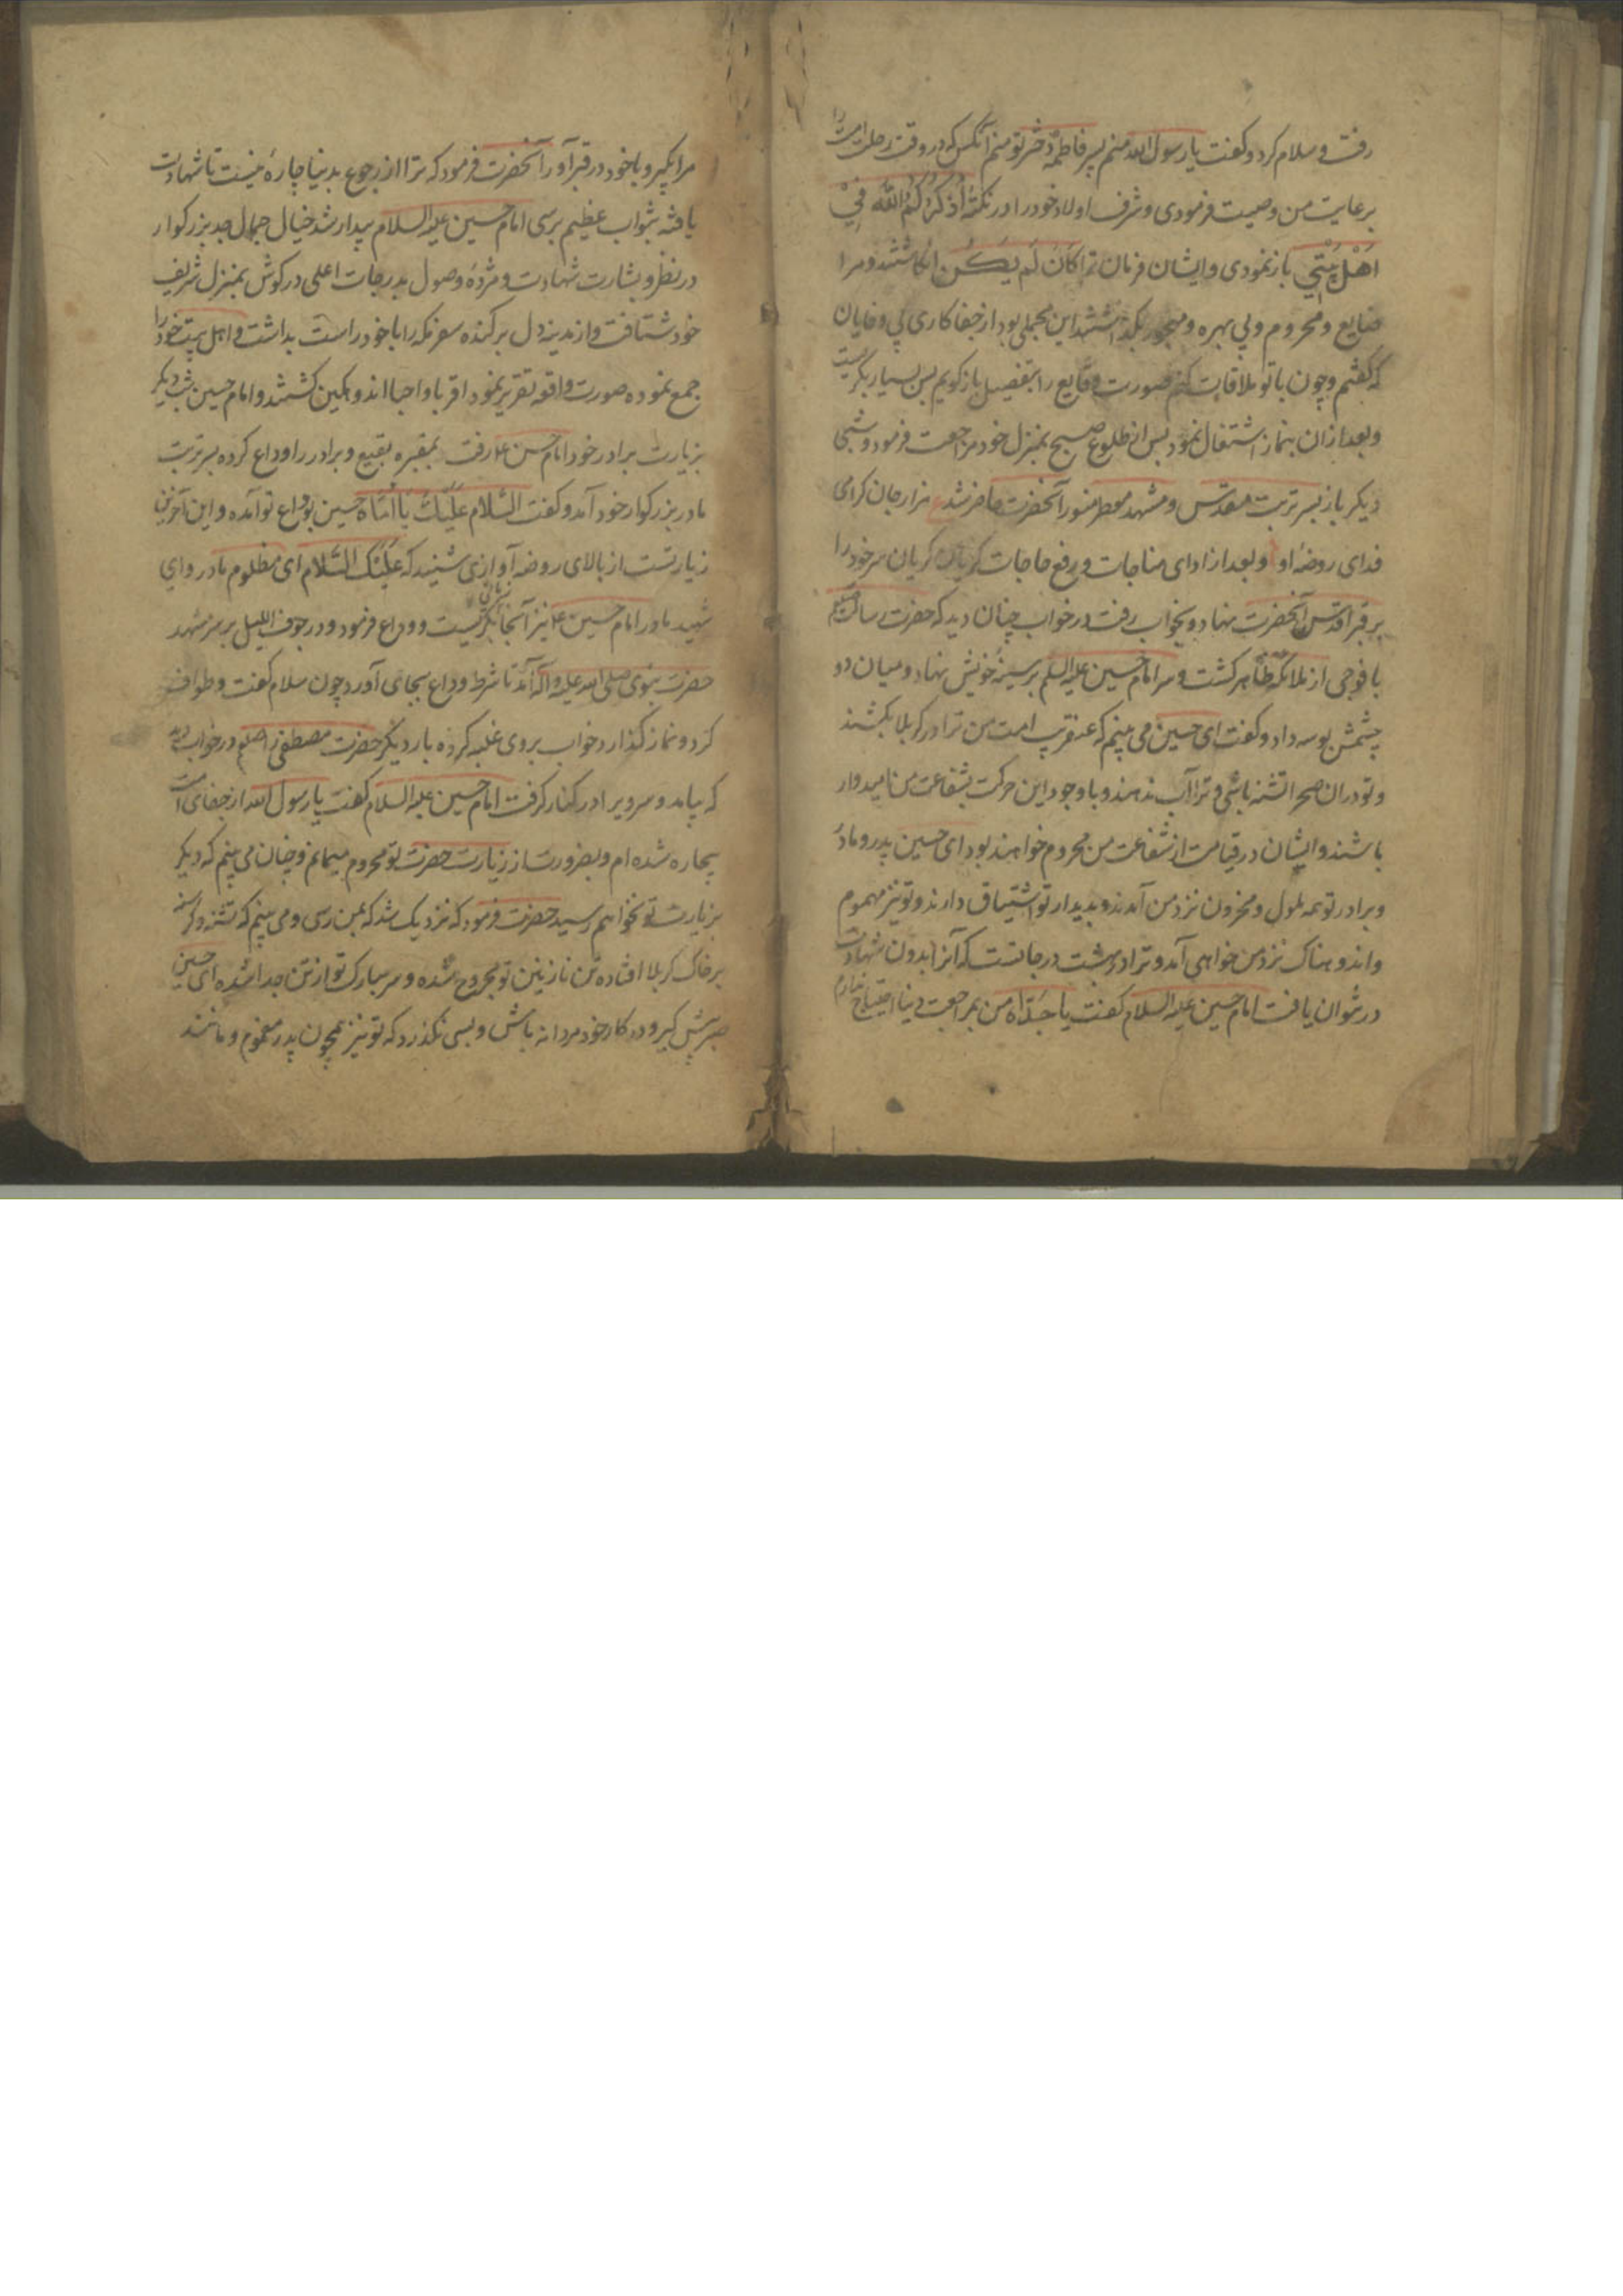 رفت و سلام کرد و کفت یا رسول الله منم پسر فاطمه دختر تو منم آنکس که در وقت رحلت امت را
برعایت من وصیت فرمودی و شرف اولاد خود را در نکتهٔ اُذَکِّرُکُمُ اللّٰهَ فِیْ
اَهْلِ بَیْتِی باز نمودی و ایشان فرمان ترا کَانَ لَم یَکُن انکاشتند و مرا
ضایع و محروم و بی بهره و مهجور بگذاشتند این مجملی بود از جفاکاری بی وفایان
که کفتم و چون با تو ملاقات کنم صورت وقایع را بتفصیل باز کویم پس بسیار بکریست
و بعد ازان بنماز اشتغال نمود پس از طلوع صبح بمنزل خود مراجعت فرمود و شبی
دیکر باز بسر تربت مقدّس و مشهد معطر منور آنحضرت حاضر شد ع هزار جان کرامی
فدای روضهٔ او و بعد از ادای مناجات و رفع حاجات کریان کریان سر خود را
بر قبر اقدس آنحضرت نهاد و بخواب رفت در خواب چنان دید که حضرت رسالت صلعم
با فوجی از ملائکه ظاهر کشت و سر امام حسین علیه السلم بر سینهٔ خویش نهاد و میان دو
چشمش بوسه داد و کفت ای حسین می بینم که عنقریب امت من ترا در کربلا بکشند
و تو دران صحرا تشنه باشی و ترا آب ندهند و با وجود این حرکت بشفاعت من امیدوار
باشند و ایشان در قیامت از شفاعت من محروم خواهند بود ای حسین پدر و مادر
و برادر تو همه ملول و محزون نزد من آمدند و بدیدار تو اشتیاق دارند و تو نیز مهموم
و اندوهناک نزد من خواهی آمد و ترا در بهشت درجاتست که آنرا بدون شهادت
در نتوان یافت امام حسین علیه السلام کفت یا جَدّاه من بمراجعت دنیا احتیاج ندارم
مرا بکیر و با خود در قبر آور آنحضرت فرمود که ترا از رجوع بدنیا چارهٔ نیست تا شهادت
یافته بثواب عظیم برسی امام حسین علیه السلام بیدار شد خیال جمال جد بزرکوار
در نظر و بشارت شهادت و مژدهٔ وصول بدرجات اعلی در کوش بمنزل شریف
خود شتافت و از مدینه دل برکنده سفر مکه را با خود راست بداشت و اهل بیت خود را
جمع نموده صورت واقعه تقریر نمود اقربا و احبا اندوهکین کشتند و امام حسین شب دیکر
بزیارت برادر خود امام حسن ع رفت بمقبره بقیع و برادر را وداع کرده بسر تربت
مادر بزرکوار خود آمد و کفت السَّلام عَلَیْکِ یَا اُمّاهُ حسین بوداع تو آمده و این آخرین
زیارتست از بالای روضه آوازی شنید که عَلَیْکَ السَّلام ای مظلوم مادر و ای
شهید مادر امام حسین ع نیز آنجا بکریست و وداع فرمود و در جوف اللیل بر سر مشهد
حضرت نبوی صلی الله علیه و آله آمد تا شرط وداع بجای آورد چون سلام کفت و طواف
کرد و نماز کذارد خواب بر وی غلبه کرده بار دیکر حضرت مصطفی را صلعم در خواب دید
که بیامد و سر ویرا در کنار کرفت امام حسین علیه السلام کفت یا رسول الله از جفای امت
بیچاره شده ام و بضرورت از زیارت حضرت تو محروم میمانم و چنان می بینم که دیکر
بزیارت تو نخواهم رسید حضرت فرمود که نزدیک شد که بمن رسی و می بینم که تشنه و کرسنه
بر خاک کربلا افتادهٔ تن نازنین تو مجروح شده و سر مبارک تو از تن جدا شده ای حسین
صبر پیش کیر و در کار خود مردانه باش و بسی نکذرد که تو نیز همچون پدر مغموم و مانند